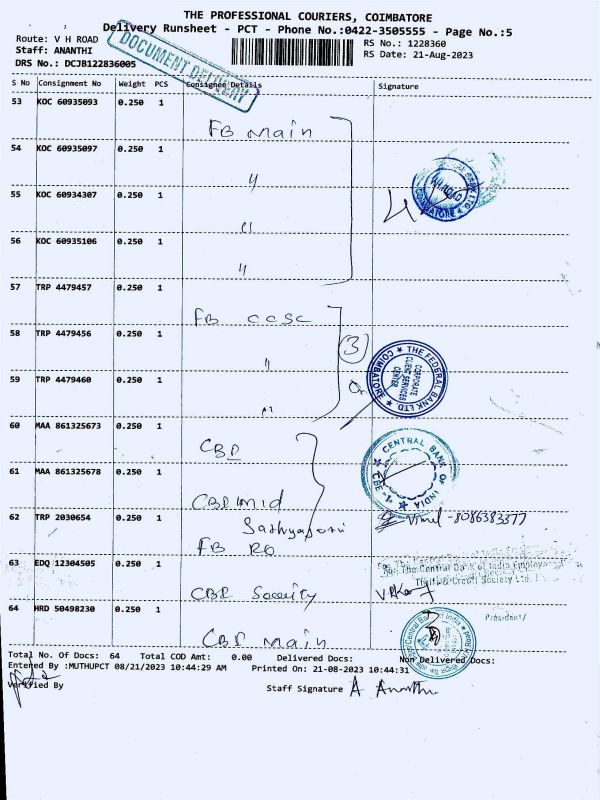 THE PROFESSIONAL COURIERS, COIMBATORE
Delivery Runsheet - PCT - Phone No.:0422-3505555 - Page No.:5
Route: V H ROAD RS No.: 1228360
Staff: ANANTHI RS Date: 21-Aug-2023
DRS No.: DCJB122836005
DOCUMENT DELIVERY
S No Consignment No Weight PCS Consignee Details Signature
53 KOC 60935093 0.250 1
FB Main
54 KOC 60935097 0.250 1
"
55 KOC 60934307 0.250 1
"
56 KOC 60935106 0.250 1
"
57 TRP 4479457 0.250 1
FB CCSC
58 TRP 4479456 0.250 1
" 3
THE FEDERAL BANK LTD COIMBATORE
CORPORATE CLIENT SERVICES CENTER
59 TRP 4479460 0.250 1
"
60 MAA 861325673 0.250 1
CBP
CENTRAL BANK OF INDIA
61 MAA 861325678 0.250 1
CBP Mid
62 TRP 2030654 0.250 1
Vimel -8086383377
FB RO
63 EDQ 12304505 0.250 1
For The Central Bank of India Employees
Thrift & Credit Society Ltd.
64 HRD 50498230 0.250 1
President
CBP Main
Total No. Of Docs: 64 Total COD Amt: 0.00 Delivered Docs: Non Delivered Docs:
Entered By :MUTHUPCT 08/21/2023 10:44:29 AM Printed On: 21-08-2023 10:44:31
Verified By Staff Signature A Ananthi